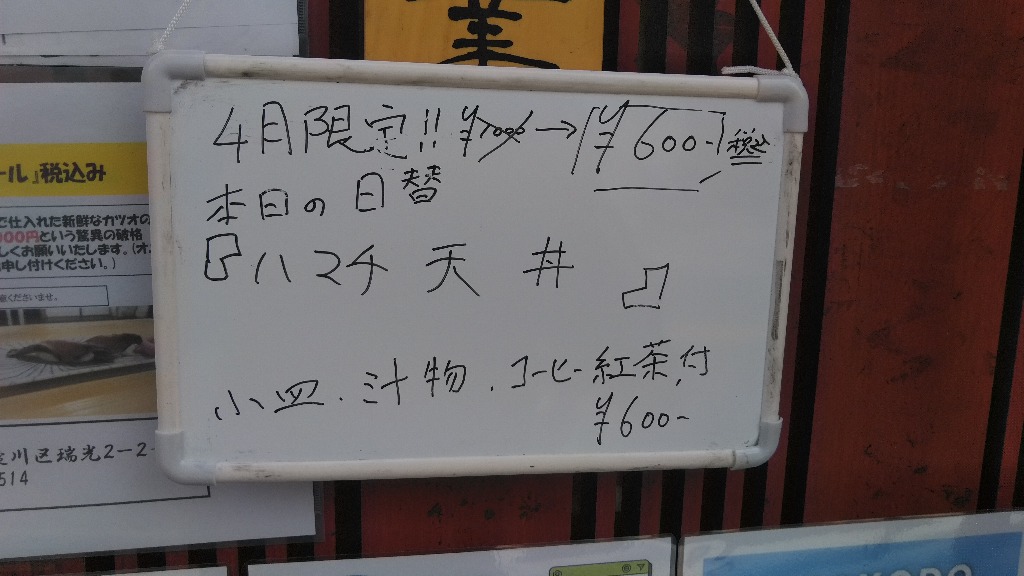 業
4月限定!! ¥1000 → ¥600-税込
本日の日替
『ハマチ天丼』
小皿、汁物、コーヒー紅茶付
¥600-
ール』税込み
で仕入れた新鮮なカツオの
000円という驚異の破格
しくお願いいたします。(オ
申し付けください。)
承くださいませ。
淀川区瑞光2-2-
514